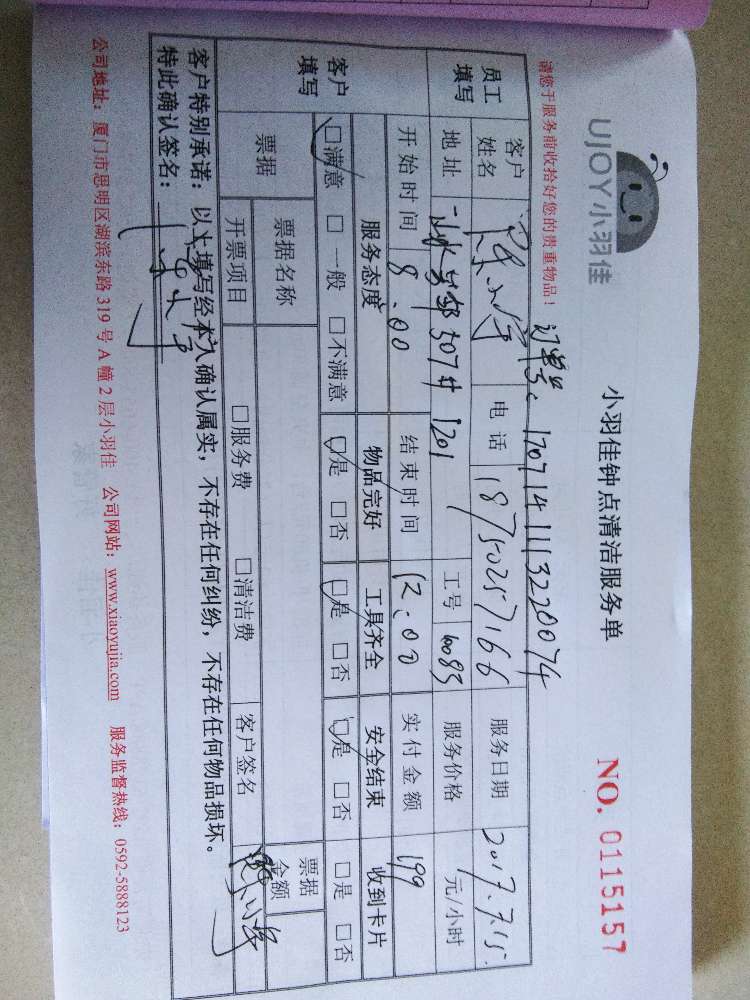 UJOY小羽佳
小羽佳钟点清洁服务单
NO. 0115157
请您于服务前收拾好您的贵重物品！
订单号: 1707141113220074
员工填写
客户姓名
电话 18750257166
服务日期 2017.7.15.
地址 307# 1201
工号
服务价格 元/小时
开始时间 8:00
结束时间 12:00
实付金额 199
客户填写
服务态度 物品完好 工具齐全 安全结束 收到卡片
□满意 □一般 □不满意 □是 □否 □是 □否 □是 □否 □是 □否
票据
票据名称
票据金额
开票项目 □服务费 □清洁费 客户签名
客户特别承诺：以上填写经本人确认属实，不存在任何纠纷，不存在任何物品损坏。
特此确认签名：
公司地址：厦门市思明区湖滨东路 319 号 A 幢 2 层小羽佳 公司网站：www.xiaoyujia.com 服务监督热线：0592-5888123